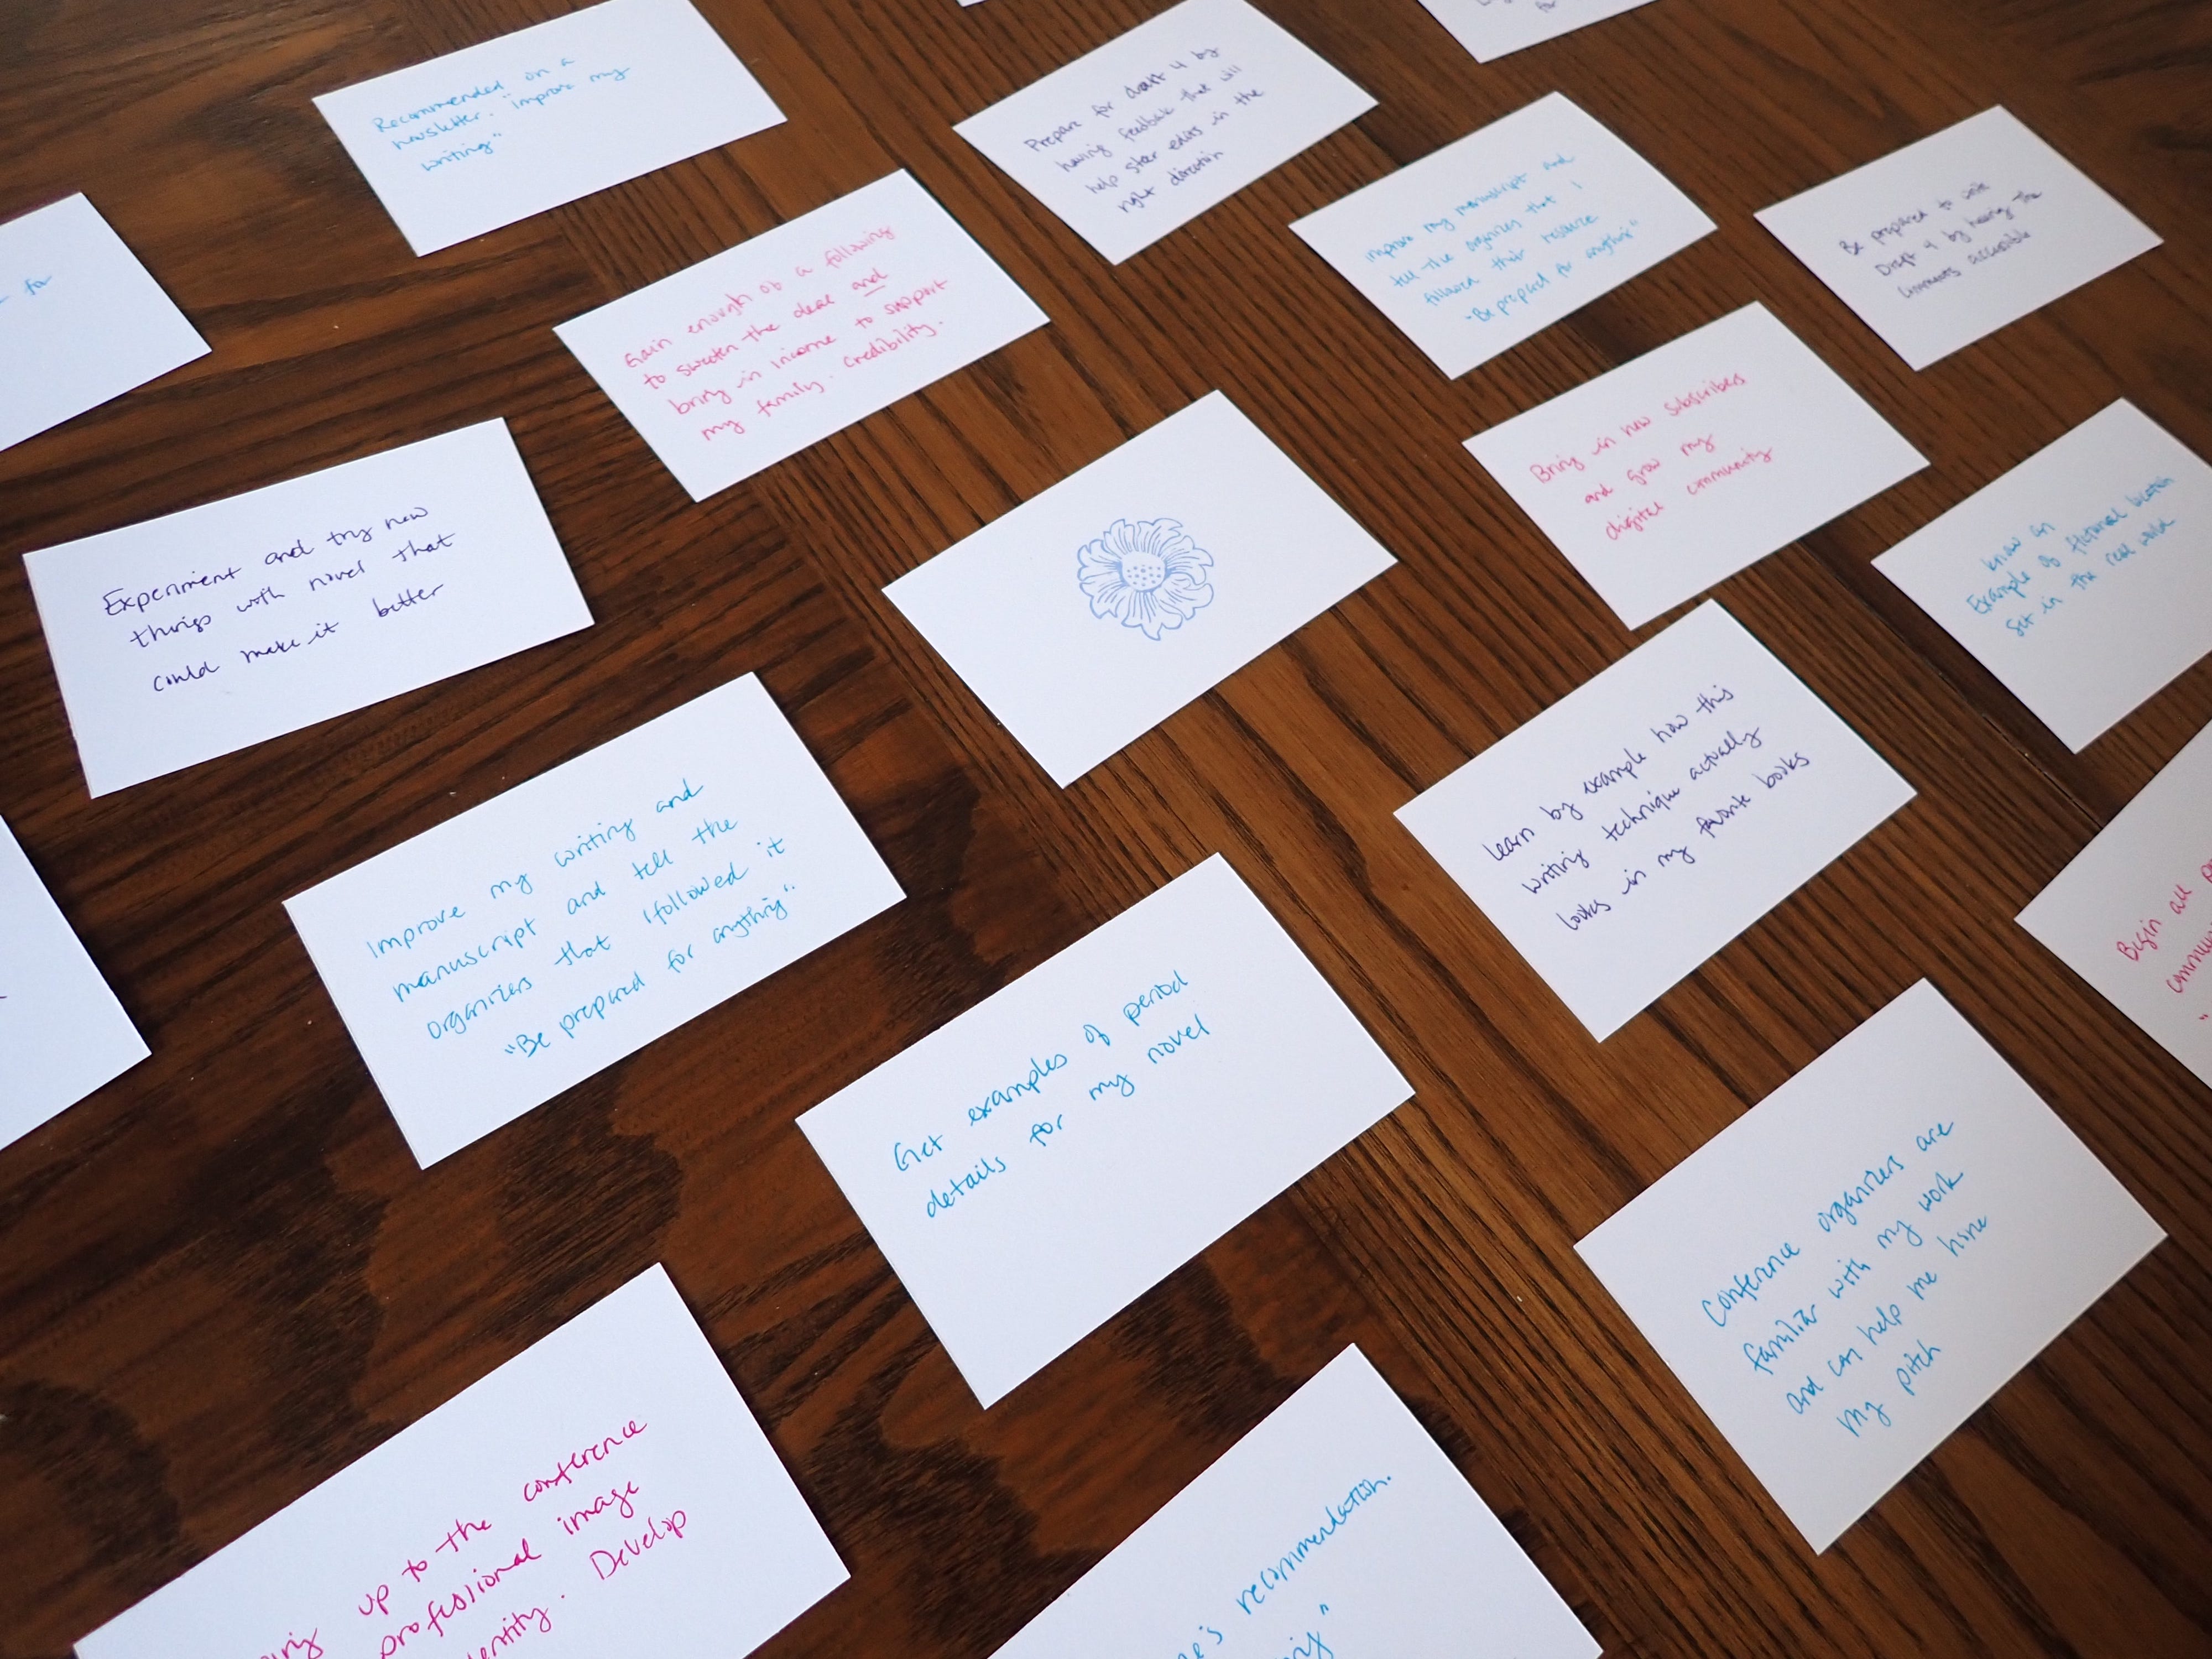 Recommended on a
newsletter. "improve my
writing"
Prepare for draft 4 by
having feedback that will
help steer edits in the
right direction
for
Improve my manuscript and
tell the organizers that I
followed their resource
"Be prepared for anything"
Be prepared to write
Draft 4 by having the
comments accessible
for
Gain enough of a following
to sweeten the deal and
bring in income to support
my family. Credibility.
Bring in new subscribers
and grow my
digital community
know an
Example of fictional location
set in the real world
Experiment and try new
things with novel that
could make it better
Learn by example how this
writing technique actually
looks in my favorite books
Improve my writing and
manuscript and tell the
organizers that I followed it
"Be prepared for anything".
Begin all
Get examples of period
details for my novel
Conference organizers are
familiar with my work
and can help me hone
my pitch
up to the conference
professional image
Develop
recommendation.